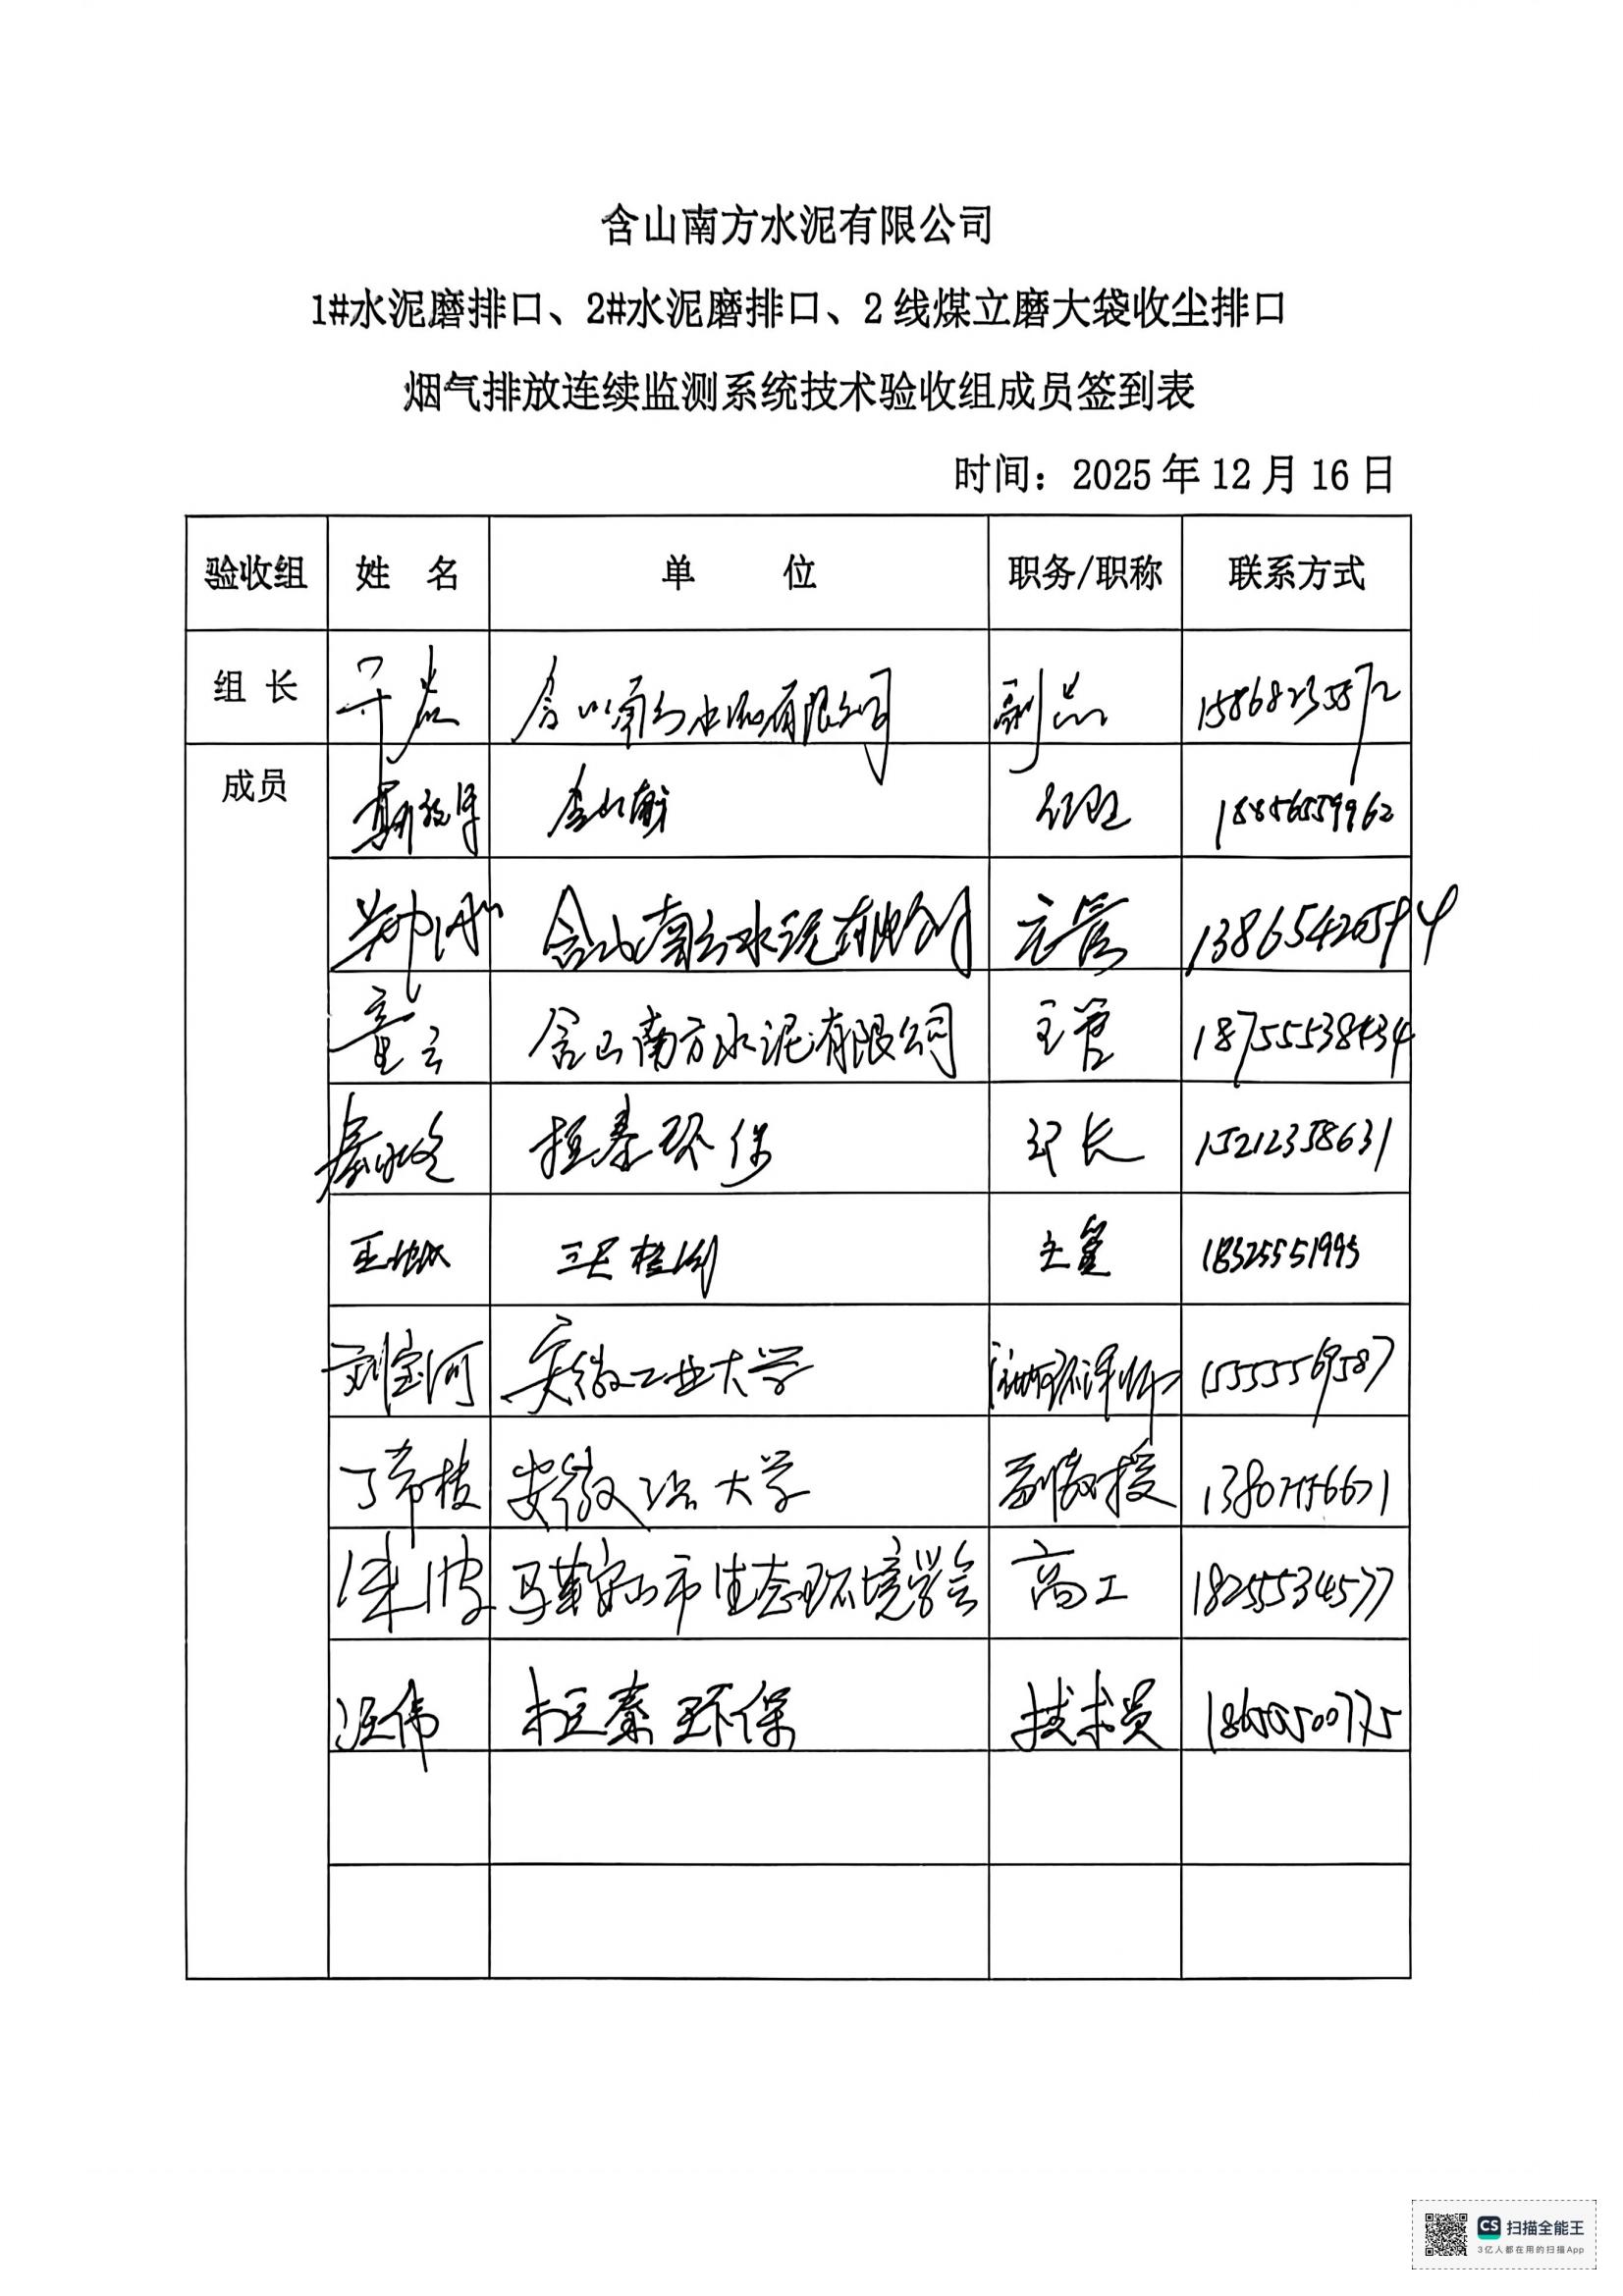 含山南方水泥有限公司
1#水泥磨排口、2#水泥磨排口、2线煤立磨大袋收尘排口
烟气排放连续监测系统技术验收组成员签到表
时间：2025年12月16日
验收组 姓 名 单 位 职务/职称 联系方式
组 长 含山南方水泥有限公司 副总 15868235872
成员 含山南方 经理 18856559962
含山南方水泥有限公司 主管
童云 含山南方水泥有限公司 主管 18755538434
秦环保 部长 15212358631
王 主管 18325551995
刘宝河 安徽工业大学 注册环评师 15555569587
丁希楼 安徽工业大学 副教授
马鞍山市生态环境学会 高工 18255534577
汪伟 秦环保 技术员
CS 扫描全能王
3亿人都在用的扫描App